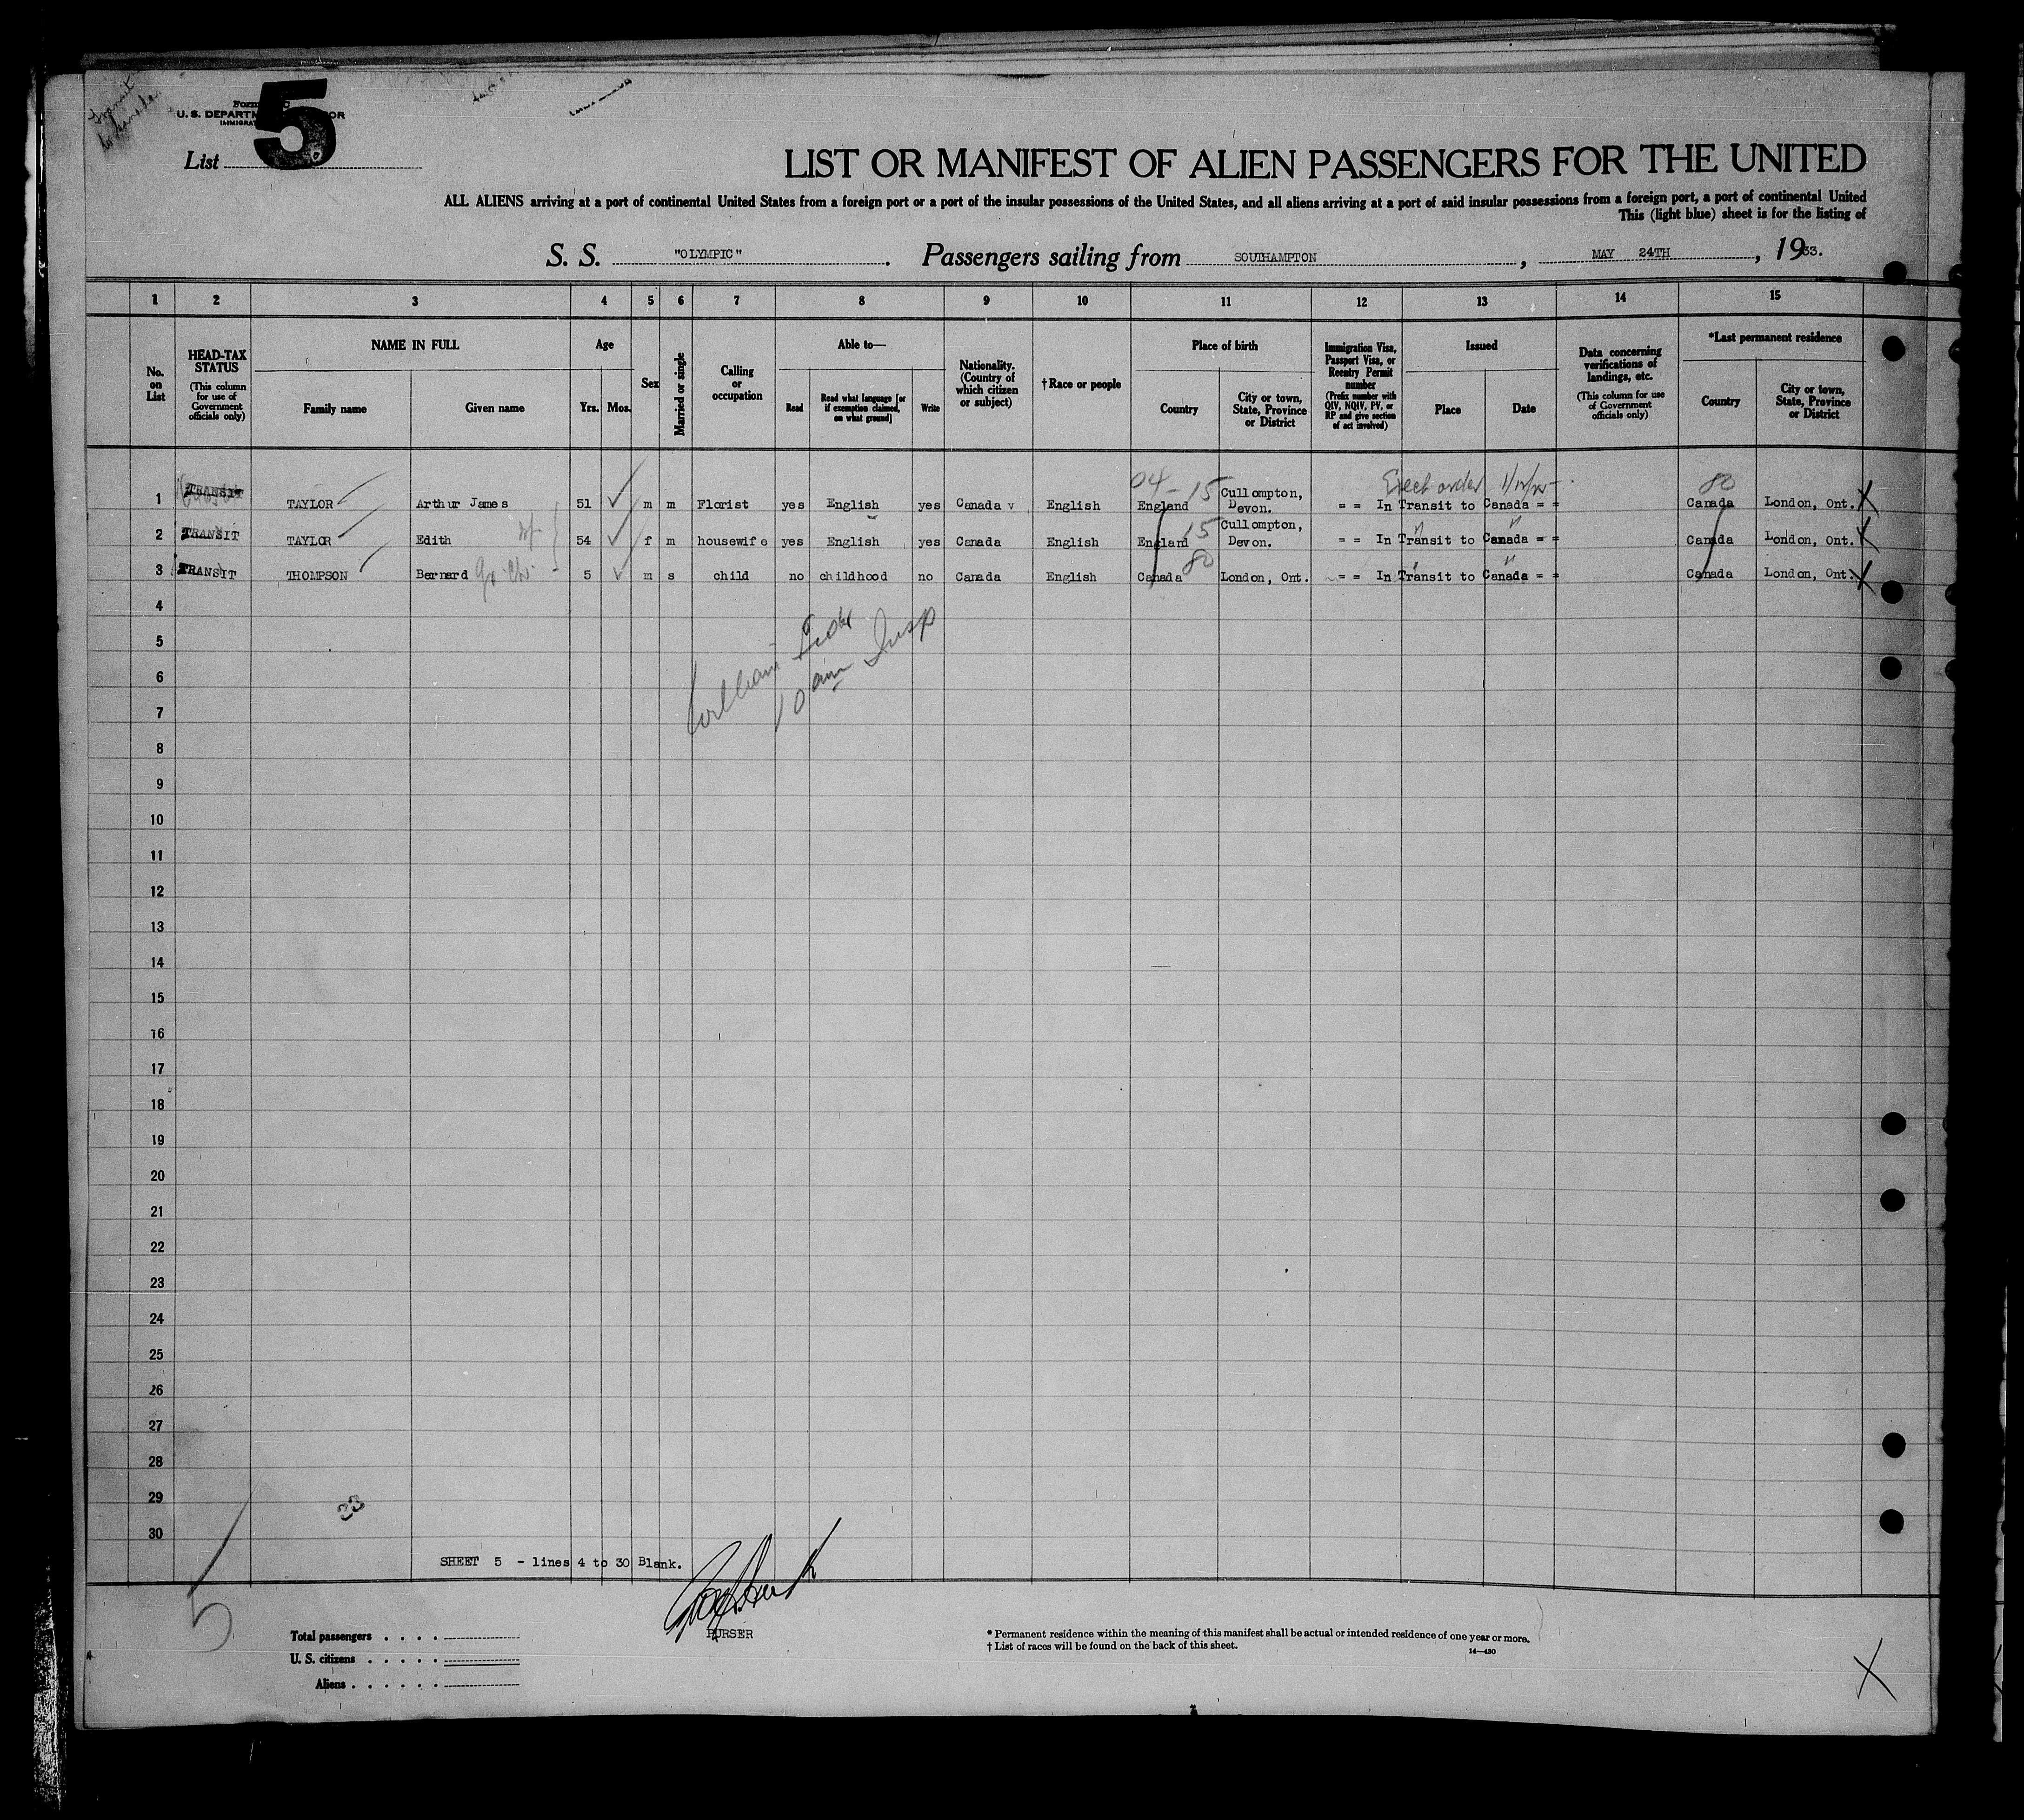 Transit
to Canada
Form
U. S. DEPARTM OR
IMMIGRA
5
List
LIST OR MANIFEST OF ALIEN PASSENGERS FOR THE UNITED
ALL ALIENS arriving at a port of continental United States from a foreign port or a port of the insular possessions of the United States, and all aliens arriving at a port of said insular possessions from a foreign port, a port of continental United
This (light blue) sheet is for the listing of
S. S. "OLYMPIC". Passengers sailing from SOUTHAMPTON, MAY 24TH, 1933.
1 2 3 4 5 6 7 8 9 10 11 12 13 14 15
No. on List
HEAD-TAX STATUS (This column for use of Government officials only)
NAME IN FULL
Family name Given name
Age
Yrs. Mos.
Sex
Married or single
Calling or occupation
Able to—
Read Read what language [or if exemption claimed, on what ground] Write
Nationality. (Country of which citizen or subject)
†Race or people
Place of birth
Country City or town, State, Province or District
Immigration Visa, Passport Visa, or Reentry Permit number (Prefix number with QIV, NQIV, PV, or RP and give section of act involved)
Issued
Place Date
Data concerning verifications of landings, etc. (This column for use of Government officials only)
*Last permanent residence
Country City or town, State, Province or District
04-15 order 80
1 TRANSIT TAYLOR Arthur James 51 m m Florist yes English yes Canada v English England Cullompton, Devon. = = In Transit to Canada = = Canada London, Ont. X
15
2 TRANSIT TAYLOR Edith 54 f m housewife yes English yes Canada English England Cullompton, Devon. = = In Transit to Canada = = Canada London, Ont. X
80
3 TRANSIT THOMPSON Bernard 5 m s child no childhood no Canada English Canada London, Ont. = = In Transit to Canada = = Canada London, Ont. X
4
5
William
10 am Insp
6
7
8
9
10
11
12
13
14
15
16
17
18
19
20
21
22
23
24
25
26
27
28
29
33
30
SHEET 5 - lines 4 to 30 Blank.
5
PURSER
Total passengers . . . .
U. S. citizens . . . . .
Aliens . . . . . .
* Permanent residence within the meaning of this manifest shall be actual or intended residence of one year or more.
† List of races will be found on the back of this sheet.
14—430
X